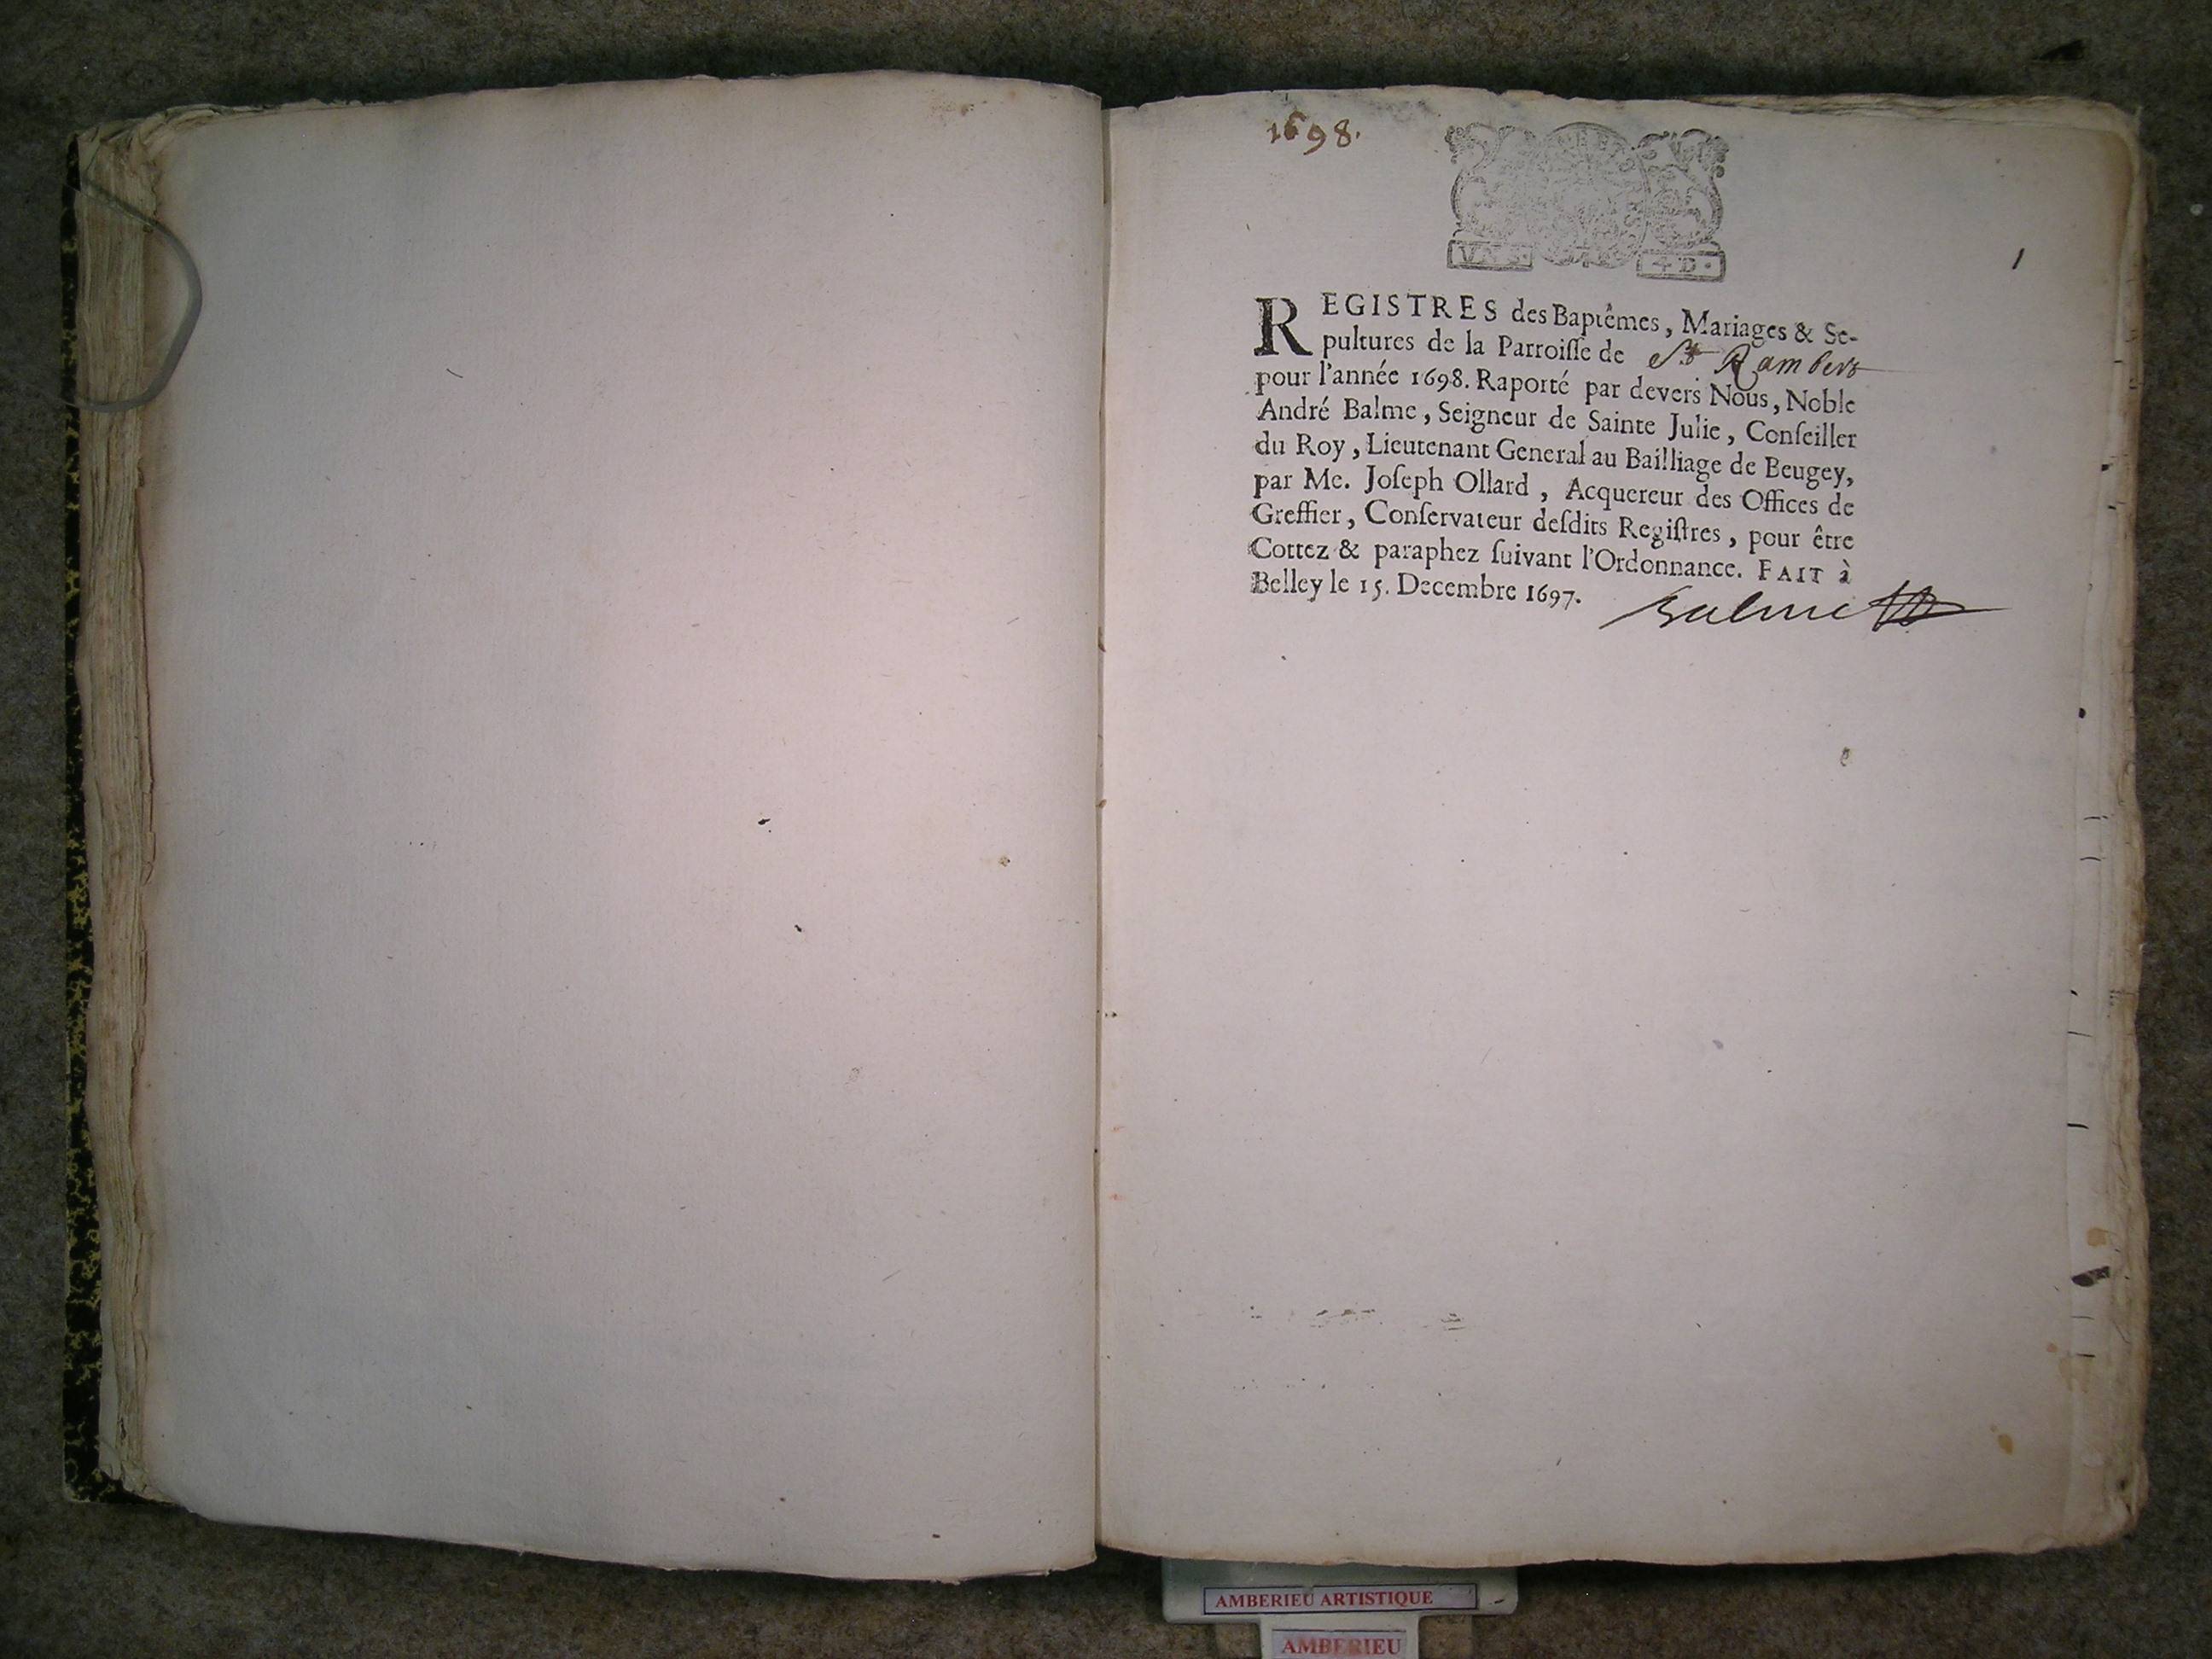 1698.
1
REGISTRES des Baptêmes, Mariages & Se-
pultures de la Parroiſſe de St Rambert
pour l'année 1698. Raporté par devers Nous, Noble
André Balme, Seigneur de Sainte Julie, Conſeiller
du Roy, Lieutenant General au Bailliage de Beugey,
par Me. Joſeph Ollard, Acquereur des Offices de
Greffier, Conſervateur deſdits Regiſtres, pour être
Cottez & paraphez ſuivant l'Ordonnance. FAIT à
Belley le 15. Decembre 1697.
Balme
AMBERIEU ARTISTIQUE
AMBERIEU